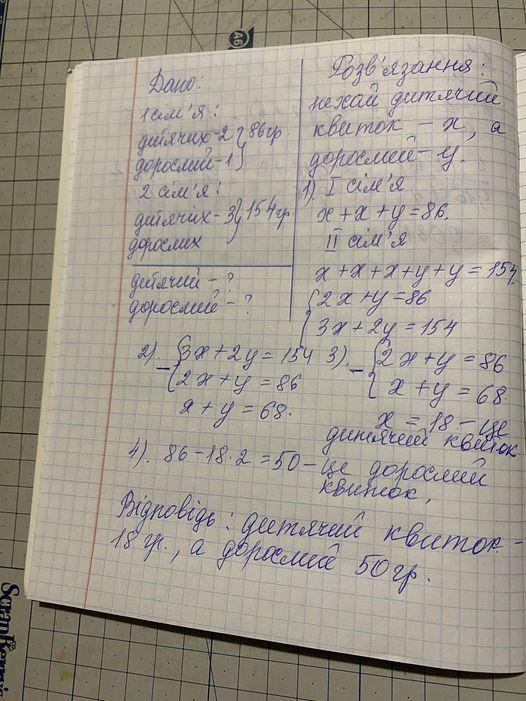 Дано:
1 сім'я:
дитячих-2 } 86гр
дорослий-1
2 сім'я:
дитячих-3 } 154гр.
дорослих
дитячий - ?
дорослий - ?
Розв'язання:
нехай дитячий
квиток - x, а
дорослий - y.
1). I сім'я
x+x+y=86.
II сім'я
x+x+x+y+y=154.
{2x+y=86
3x+2y=154
2). -{3x+2y=154
2x+y=86
x+y=68.
3). -{2x+y=86
x+y=68.
x=18-це
дитячий квиток
4). 86-18·2=50-це дорослий
квиток.
Відповідь: дитячий квиток -
18гр., а дорослий 50гр.
A6